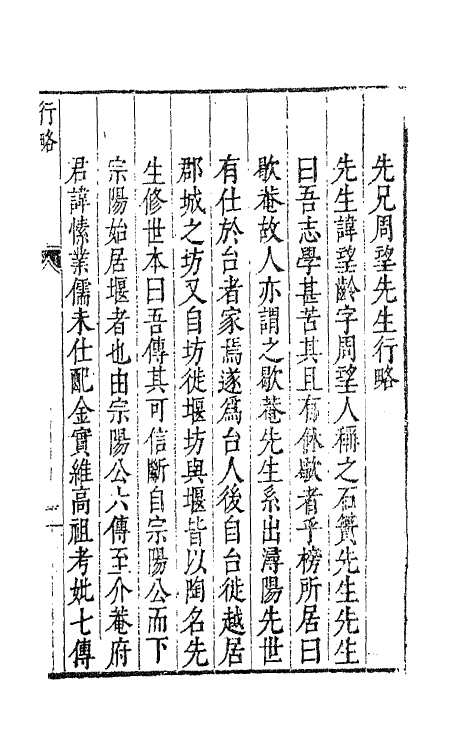 先兄周望先生行略
先生諱望齡字周望人稱之石簣先生先生
曰吾志學甚苦其且有休歇者乎榜所居曰
歇菴故人亦謂之歇菴先生系出潯陽先世
有仕於台者家焉遂為台人後自台徙越居
郡城之坊又自坊徙堰坊與堰皆以陶名先
生修世本曰吾傳其可信斷自宗陽公而下
宗陽始居堰者也由宗陽公六傳至介菴府
君諱愫業儒未仕配金實維高祖考妣七傳
行略
一